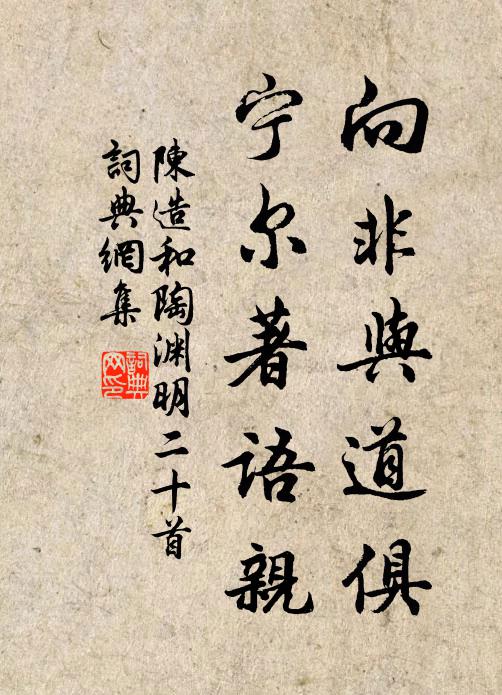 向非與道俱
宁尔著语親
陳造和陶渊明二十首
詞典網集
詞典
网印